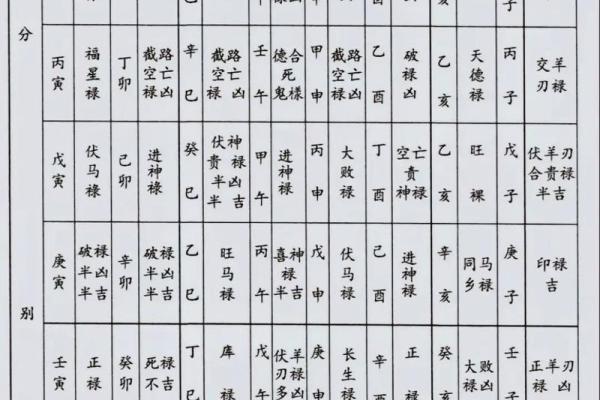 分
别
巳
申
亥
子
丙寅
福星禄
丁卯
截路空亡禄凶
辛巳
截路空亡禄凶
壬午
德合死鬼樣
甲申
截路空亡禄凶
乙酉
破禄凶
乙亥
天德禄
丙子
交羊刃禄
戊寅
伏马禄
己卯
进神禄
癸巳
伏神贵禄半凶半吉
甲午
进神禄
丙申
大败禄
丁酉
空亡贵神禄
乙亥
旺裸
戊子
伏羊刃合贵禄半吉
庚寅
破禄半凶半吉
辛卯
破禄半凶半吉
乙巳
旺马禄
丙午
喜神禄半吉
戊申
伏马禄
己酉
进神禄
辛亥
同马乡禄
庚子
印禄吉
壬寅
正禄
癸卯
死禄不吉
丁巳
库禄
戊午
伏羊刃禄多凶
庚申
长生禄
辛
正禄
癸亥
大败禄凶
壬子
正羊刃禄凶